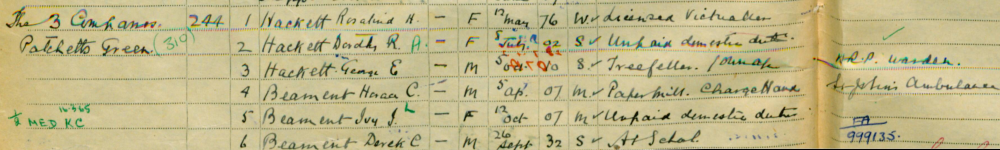 The 3 Compasses. 244 1 Hackett Rosalind H. — F 12 Mar 76 W Licensed Victualler
Patchetts Green. (310) 2 Hackett R. A. — F 5 July 02 S Unpaid domestic duties
3 Hackett George E — M 5 S Treefeller. A.R.P. Warden.
4 Beament Horace C. — M 5 Ap. 07 M Paper Mill. Charge Hand St John's Ambulance
16.3.65
MED KC 5 Beament Ivy J. L — F 12 Oct 07 M Unpaid domestic duties FA
999135.
6 Beament Derek C — M 26 Sept 32 S At School.